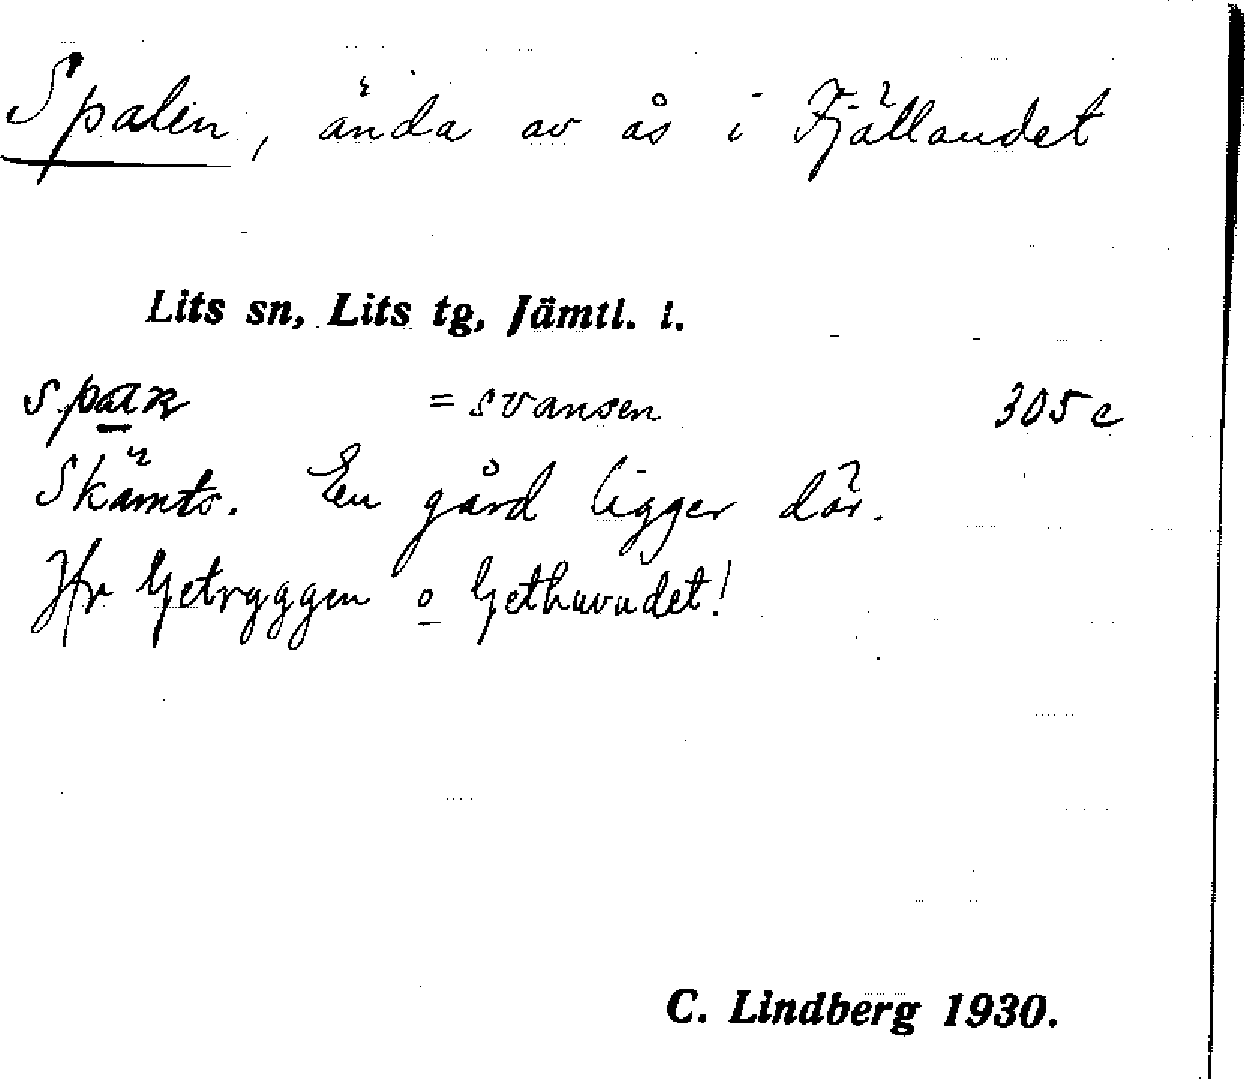 Spalen, ända av ås i Fjällandet
Lits sn, Lits tg, Jämtl. l.
= svansen 305 c
Skämts. En gård ligger där.
Jfr Getryggen o Gethuvudet!
C. Lindberg 1930.